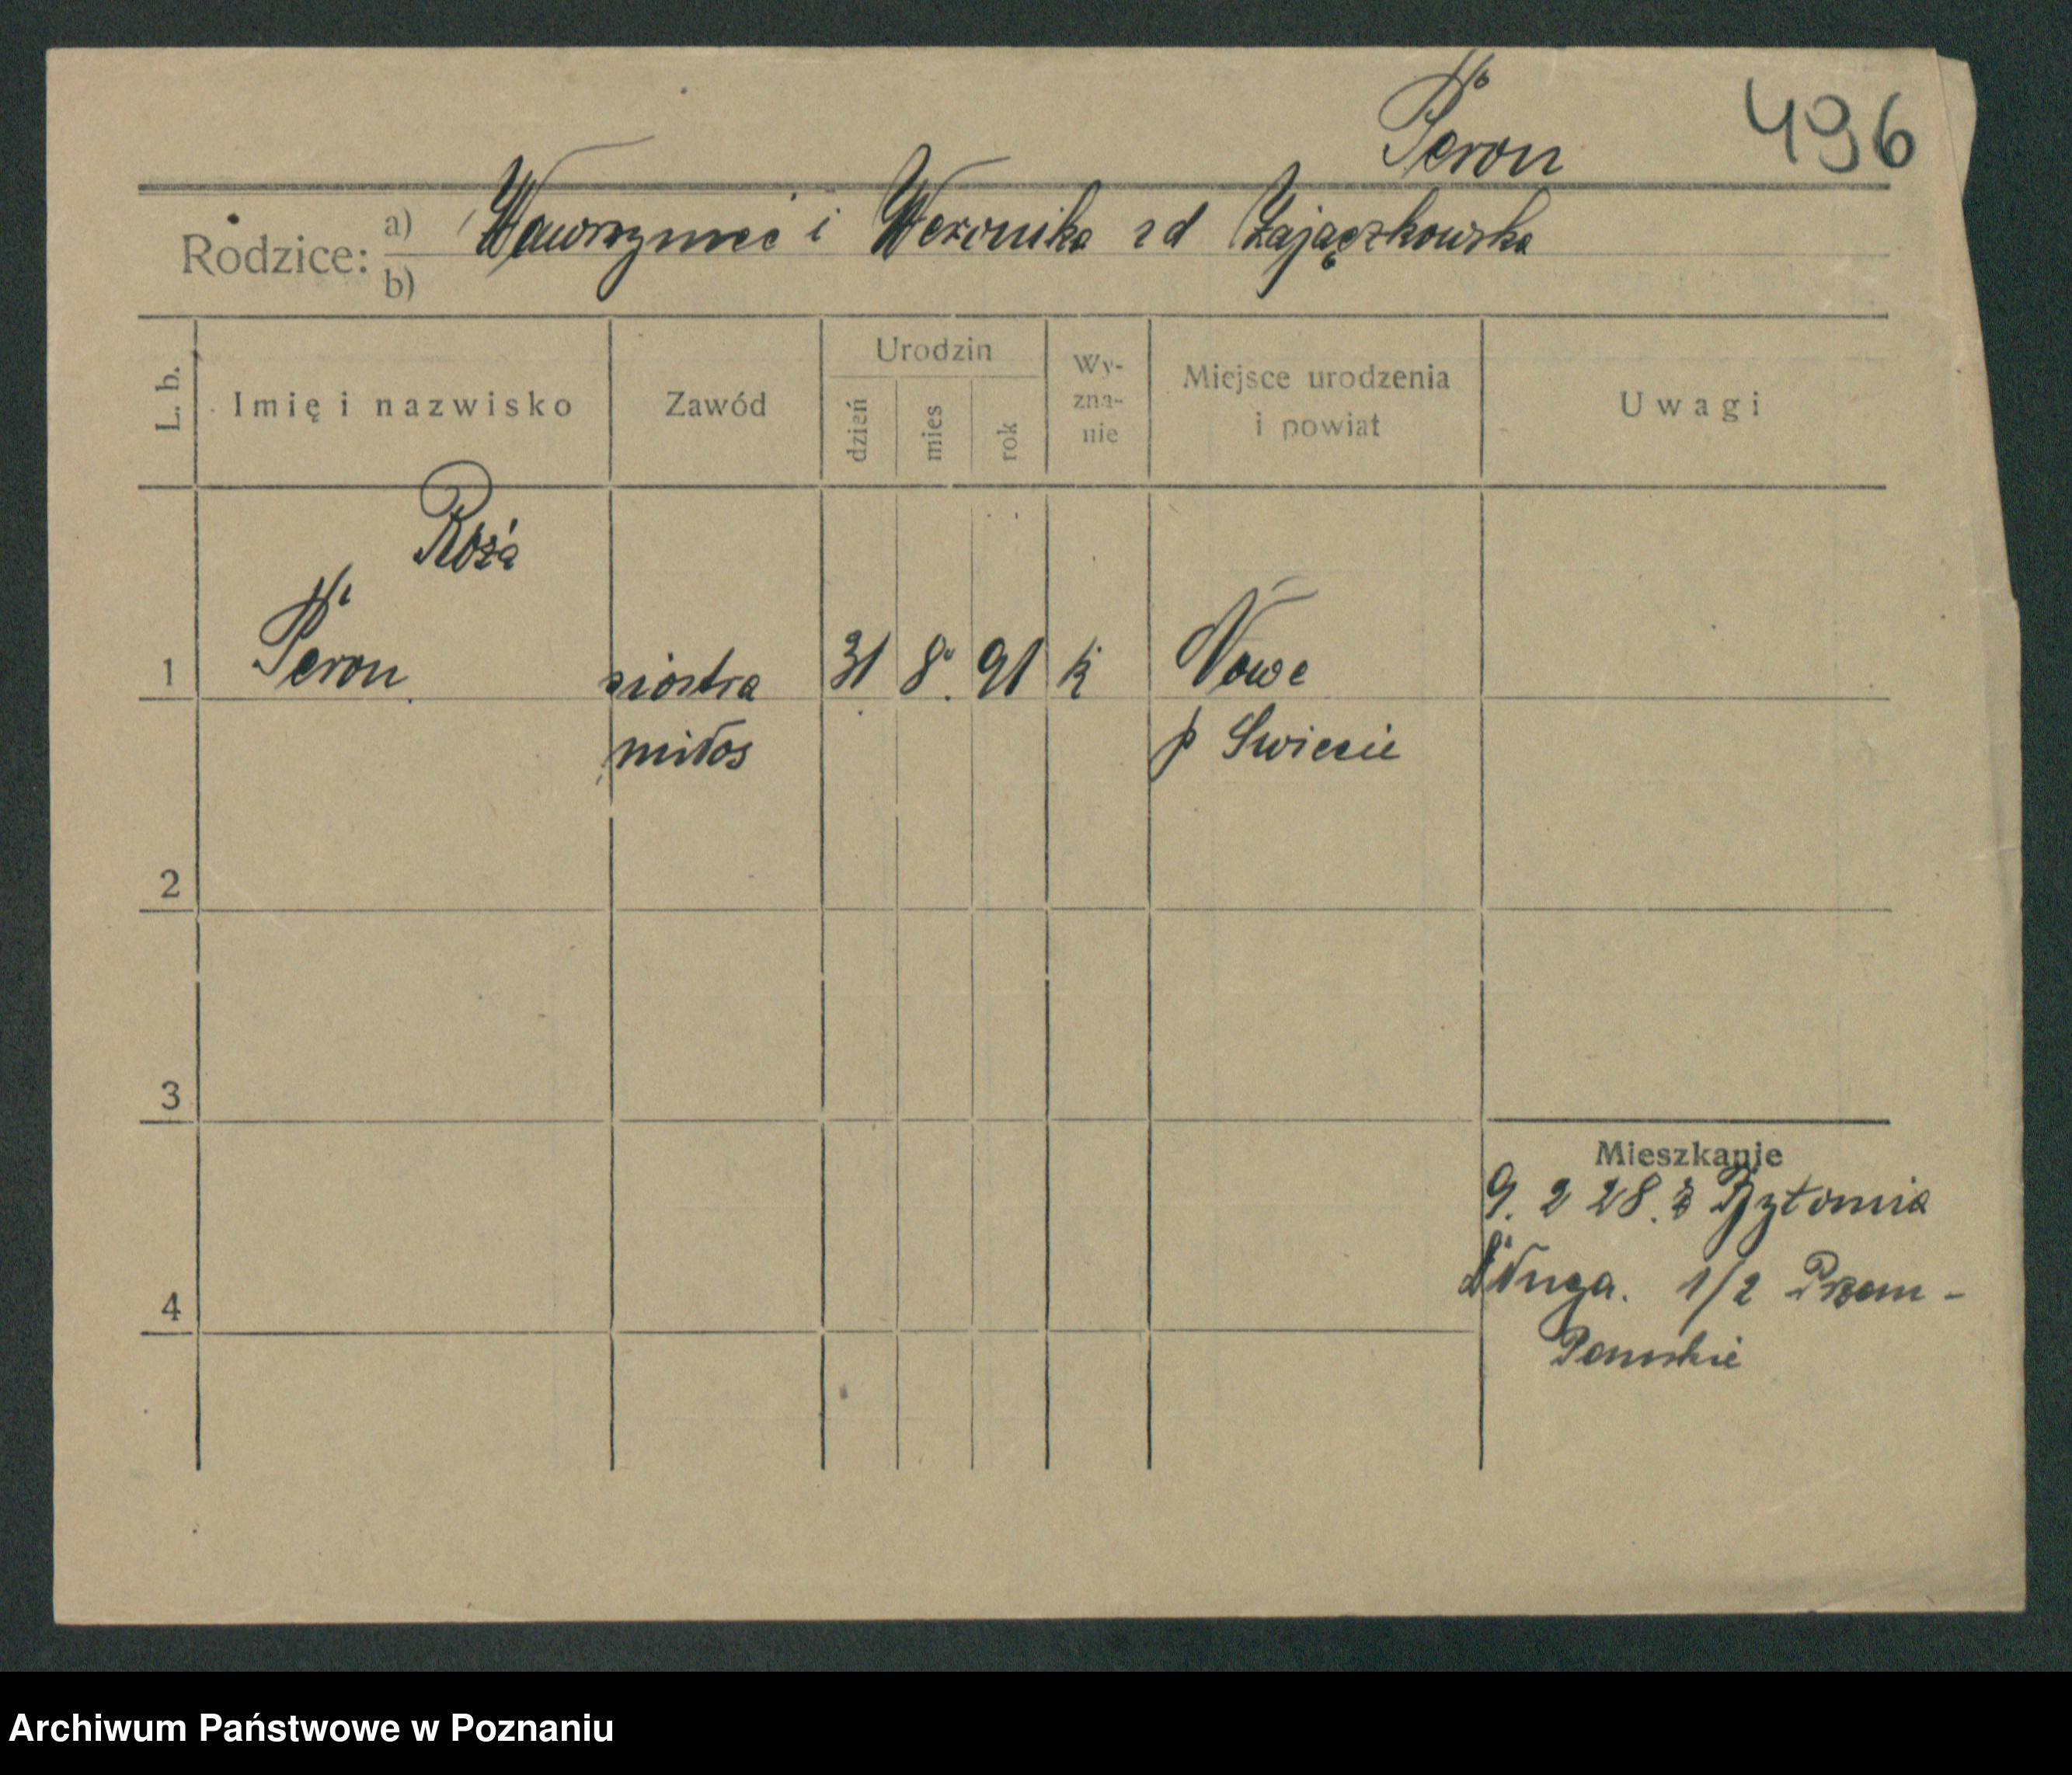 Peron 496
Rodzice: a) Wawrzyniec i Weronika zd Zajączkowska
b)
L. b. Imię i nazwisko Zawód Urodzin dzień mies rok Wy-zna-nie Miejsce urodzenia i powiat Uwagi
Róża
1 Peron siostra 31 8. 91 k Nowe
miłos p Swiecie
2
3
Mieszkanie
9. 2 28. z Bytomia
Długa. 1/2 Przem-
4
Archiwum Państwowe w Poznaniu